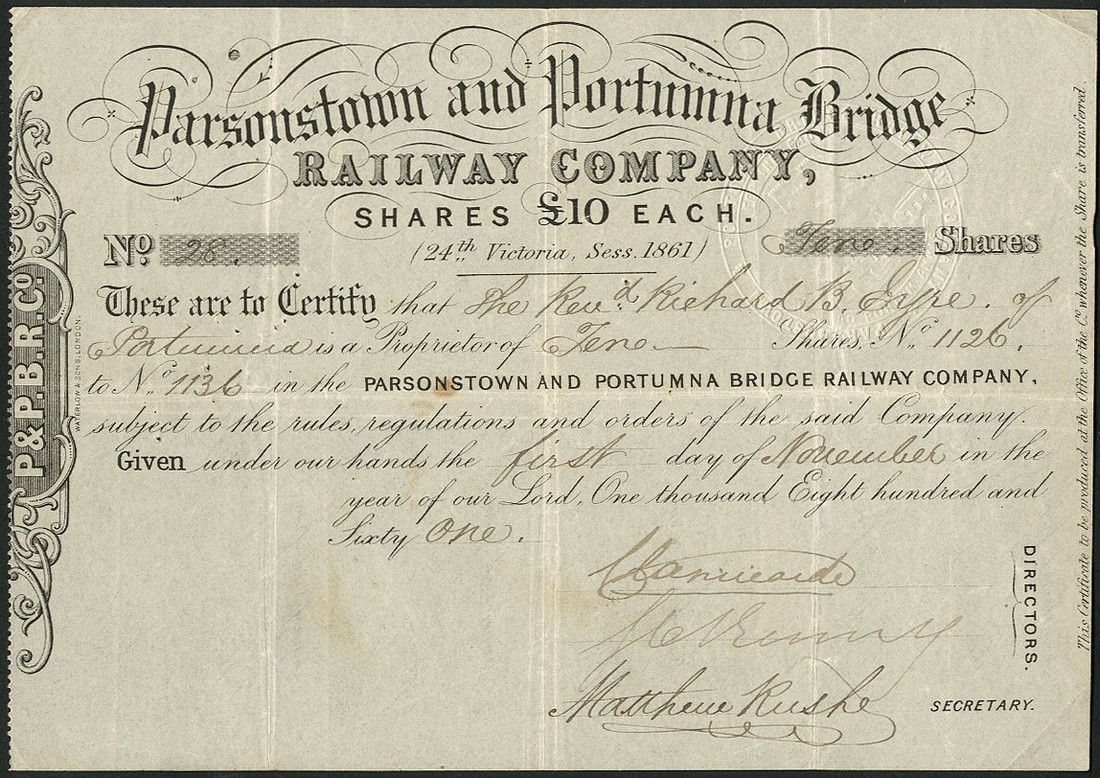 Parsonstown and Portumna Bridge
RAILWAY COMPANY,
SHARES £10 EACH.
No. 28. (24th Victoria, Sess. 1861) Tene. Shares
These are to Certify that The Revd. Richard B. Eyre. of
Portumna is a Proprietor of Tene Shares, No. 1126.
to No. 1136 in the PARSONSTOWN AND PORTUMNA BRIDGE RAILWAY COMPANY,
subject to the rules, regulations and orders of the said Company.
Given under our hands the first day of November in the
year of our Lord, One thousand Eight hundred and
Sixty One.
Clanricarde
DIRECTORS.
Matthew Rushe SECRETARY.
P. & P. B. R. Co.
WATERLOW & SONS, LONDON.
This Certificate to be produced at the Office of the Co. whenever the Share is transferred.